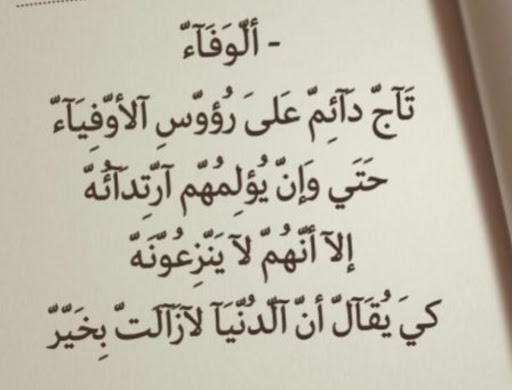 - ألّوَفَآءّ
تَآجّ دَآئِمّ عَلَىَ رُؤوّسِ آلأوّفِيَآءّ
حَتَي وَإنّ يُؤلِمُهّم آرّتِدآئُهّ
إلآ أنّهُمّ لآ يَنّزِعُوّنَهّ
كيَ يُقَآلّ أنّ آلّدنّيَآ لآزَآلَتّ بِخَيّرّ